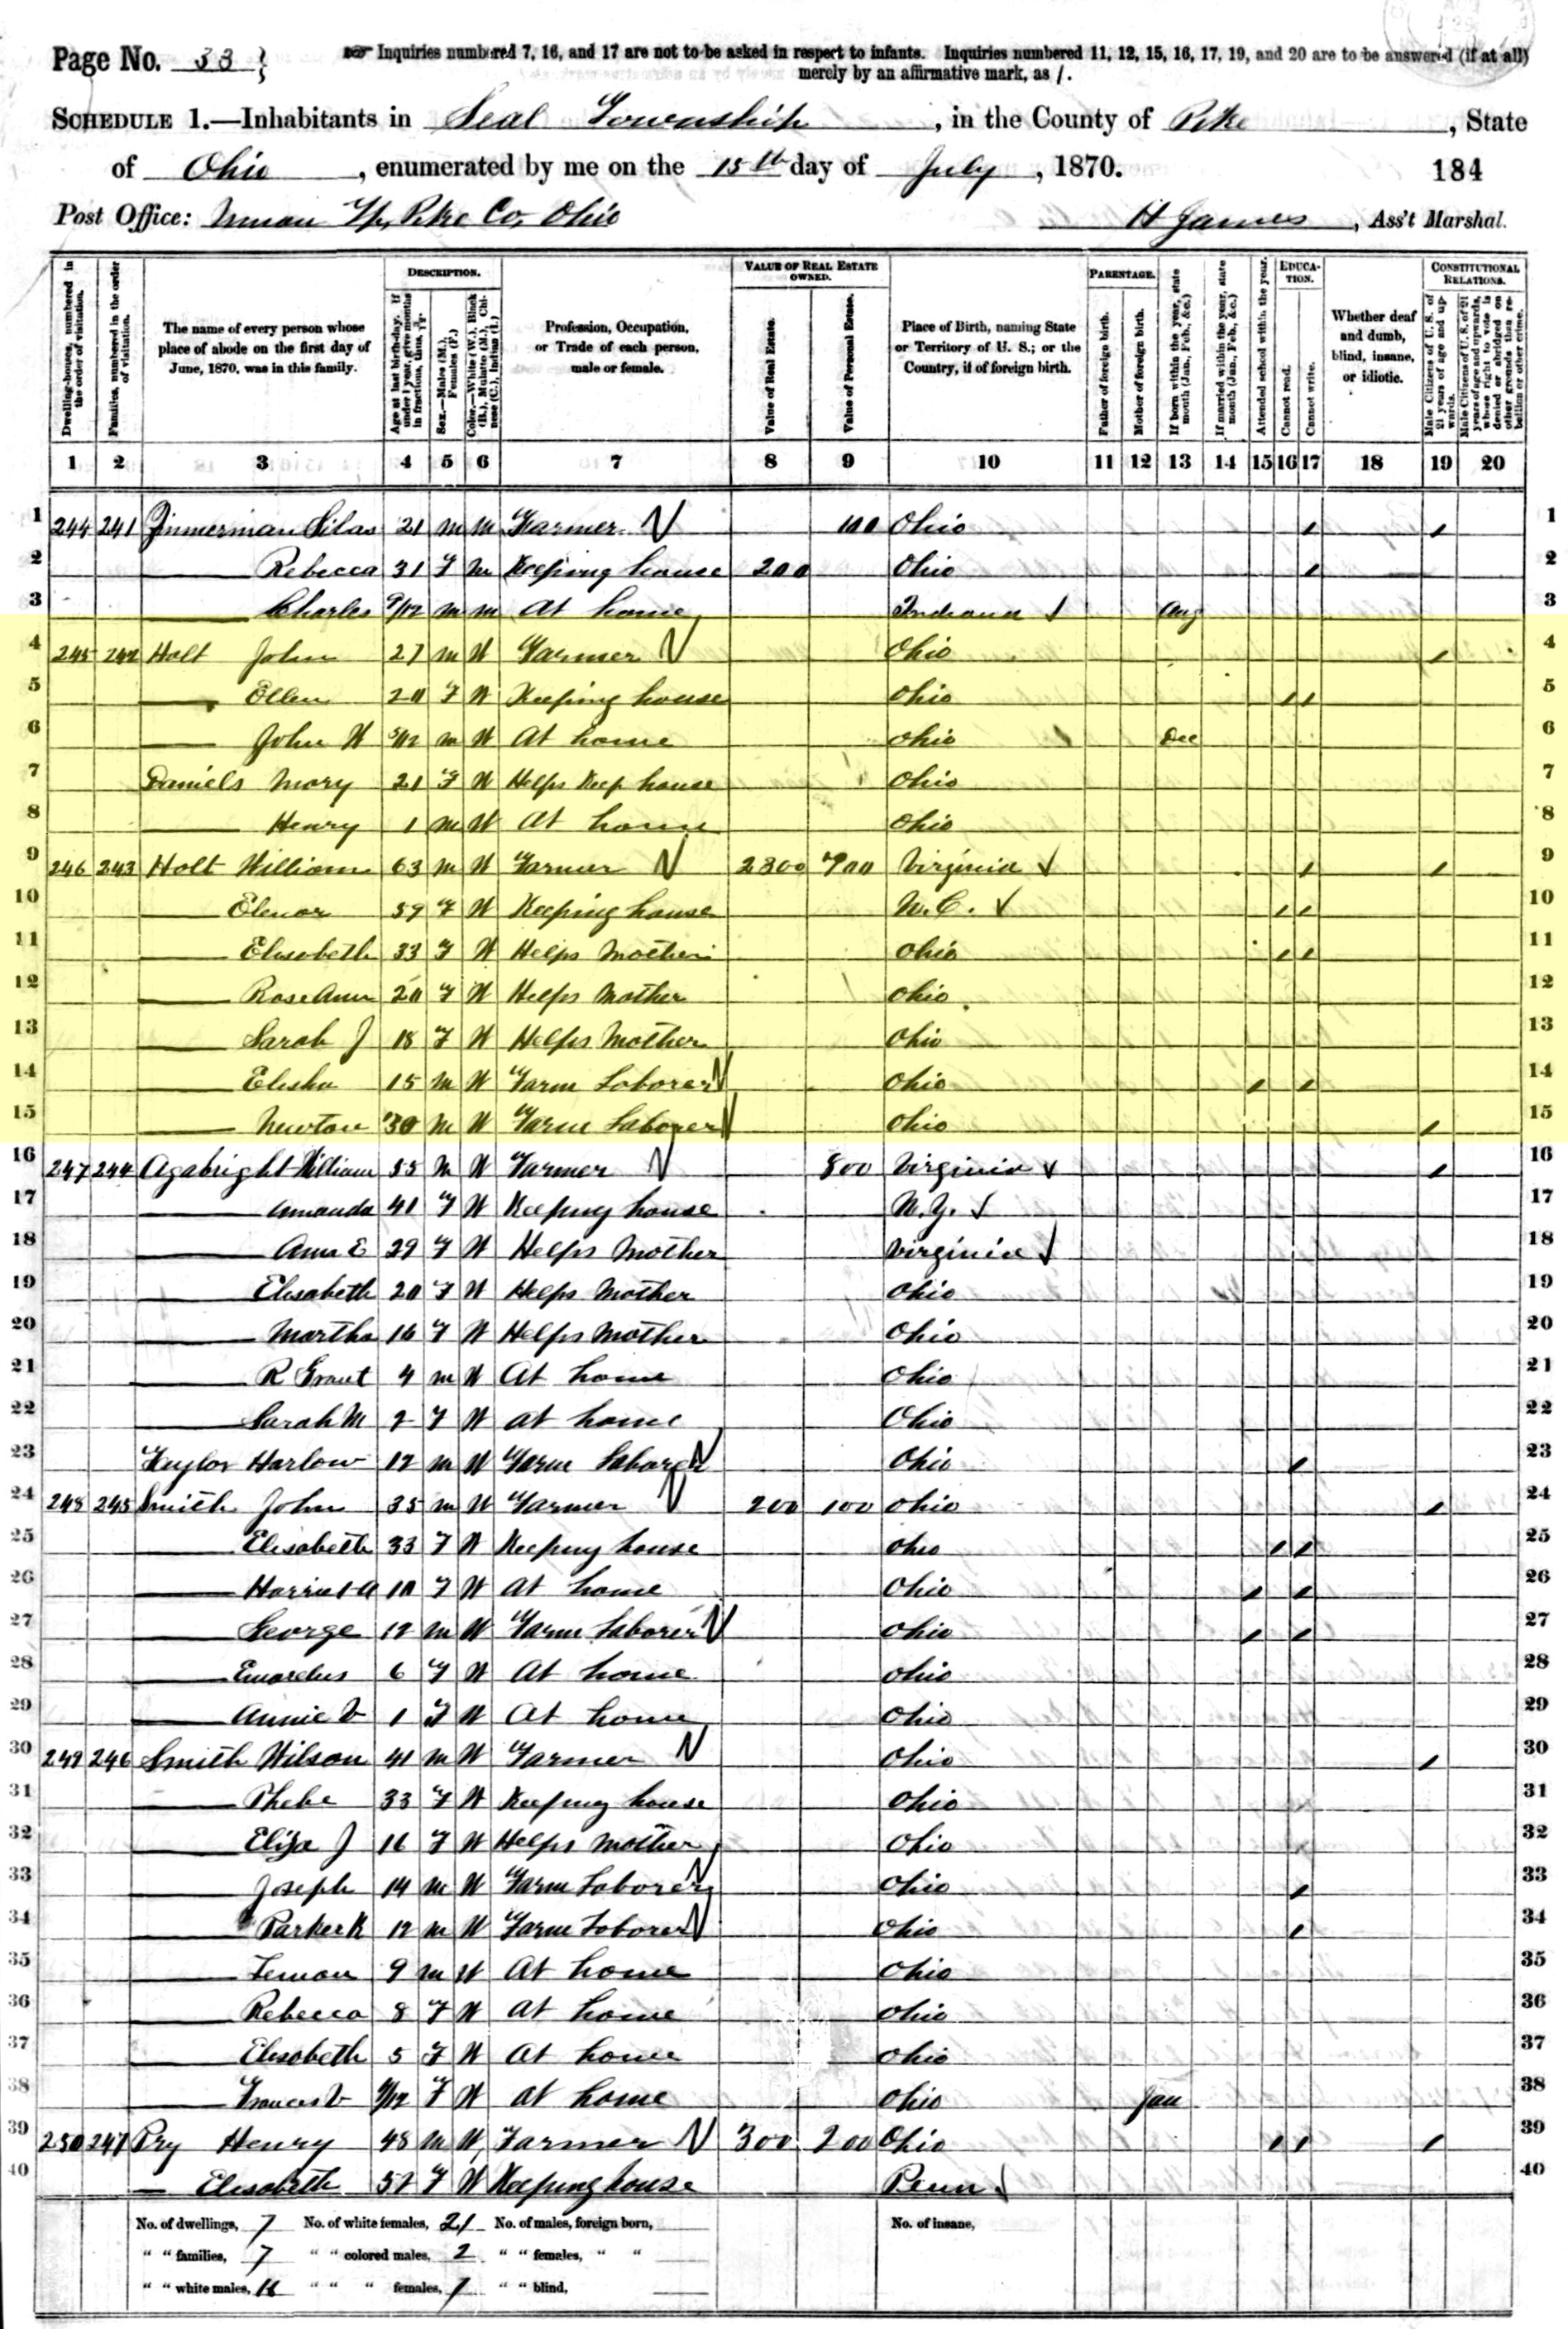 Page No. 33
Inquiries numbered 7, 16, and 17 are not to be asked in respect to infants. Inquiries numbered 11, 12, 15, 16, 17, 19, and 20 are to be answered (if at all)
merely by an affirmative mark, as /.
SCHEDULE 1.—Inhabitants in Seal Township, in the County of Pike, State
of Ohio, enumerated by me on the 15th day of July, 1870. 184
Post Office: Pike Co, Ohio H James, Ass't Marshal.
Dwelling-houses, numbered in the order of visitation.
Families, numbered in the order of visitation.
The name of every person whose place of abode on the first day of June, 1870, was in this family.
DESCRIPTION.
Age at last birth-day. If under 1 year, give months in fractions, thus,
Sex.—Males (M.), Females (F.)
Color.—White (W.), Black (B.), Mulatto (M.), Chinese (C.), Indian (I.)
Profession, Occupation, or Trade of each person, male or female.
VALUE OF REAL ESTATE OWNED.
Value of Real Estate.
Value of Personal Estate.
Place of Birth, naming State or Territory of U. S.; or the Country, if of foreign birth.
PARENTAGE.
Father of foreign birth.
Mother of foreign birth.
If born within the year, state month (Jan., Feb., &c.)
If married within the year, state month (Jan., Feb., &c.)
Attended school within the year.
EDUCATION.
Cannot read.
Cannot write.
Whether deaf and dumb, blind, insane, or idiotic.
CONSTITUTIONAL RELATIONS.
Male Citizens of U. S. of 21 years of age and upwards.
Male Citizens of U. S. of 21 years of age and upwards, whose right to vote is denied or abridged on other grounds than rebellion or other crime.
1 2 3 4 5 6 7 8 9 10 11 12 13 14 15 16 17 18 19 20
1 244 241 Zimmerman Silas 21 m m Farmer 100 Ohio / / 1
2 Rebecca 31 F m Keeping house 200 Ohio / 2
3 Charles 9/12 m m At home Indiana Aug 3
4 245 242 Holt John 27 m W Farmer Ohio / 4
5 Ellen 20 F W Keeping house Ohio / / 5
6 John W 5/12 m W At home Ohio Dec 6
7 Daniels Mary 21 F W Helps Keep house Ohio 7
8 Henry 1 m W At home Ohio 8
9 246 243 Holt William 63 m W Farmer 2800 700 Virginia / / 9
10 Elenor 59 F W Keeping house N.C. / / 10
11 Elisabeth 33 F W Helps Mother Ohio / / 11
12 RoseAnn 20 F W Helps Mother Ohio 12
13 Sarah J 18 F W Helps Mother Ohio 13
14 Elisha 15 m W Farm Laborer Ohio / / 14
15 Newton 30 m W Farm Laborer Ohio / 15
16 247 244 Agabright William 55 m W Farmer 800 Virginia / 16
17 Amanda 41 F W Keeping house N.Y. 17
18 Ann E 29 F W Helps Mother Virginia 18
19 Elisabeth 20 F W Helps Mother Ohio 19
20 Martha 16 F W Helps Mother Ohio 20
21 R Grant 4 m W At home Ohio 21
22 Sarah M 2 F W At home Ohio 22
23 Harlow 12 m W Farm Laborer Ohio / 23
24 248 245 Smith John 35 m W Farmer 200 100 Ohio / 24
25 Elisabeth 33 F W Keeping house Ohio / / 25
26 Harriet A 10 F W At home Ohio / / 26
27 George 12 m W Farm Laborer Ohio / / 27
28 6 F W At home Ohio 28
29 Annie V 1 F W At home Ohio 29
30 249 246 Smith Wilson 41 m W Farmer Ohio / 30
31 Phebe 33 F W Keeping house Ohio 31
32 Eliza J 16 F W Helps Mother Ohio 32
33 Joseph 14 m W Farm Laborer Ohio / 33
34 Parker K 12 m W Farm Laborer Ohio / 34
35 9 m W At home Ohio 35
36 Rebecca 8 F W At home Ohio 36
37 Elisabeth 5 F W At home Ohio 37
38 Frances V F W At home Ohio Jan 38
39 250 247 Pry Henry 48 m W Farmer 300 200 Ohio / / / 39
40 Elisabeth F W Keeping house Penn 40
No. of dwellings, 7 No. of white females, 21 No. of males, foreign born, No. of insane,
" " families, 7 " " colored males, 2 " " females, " "
" " white males, " " " females, 1 " " blind,